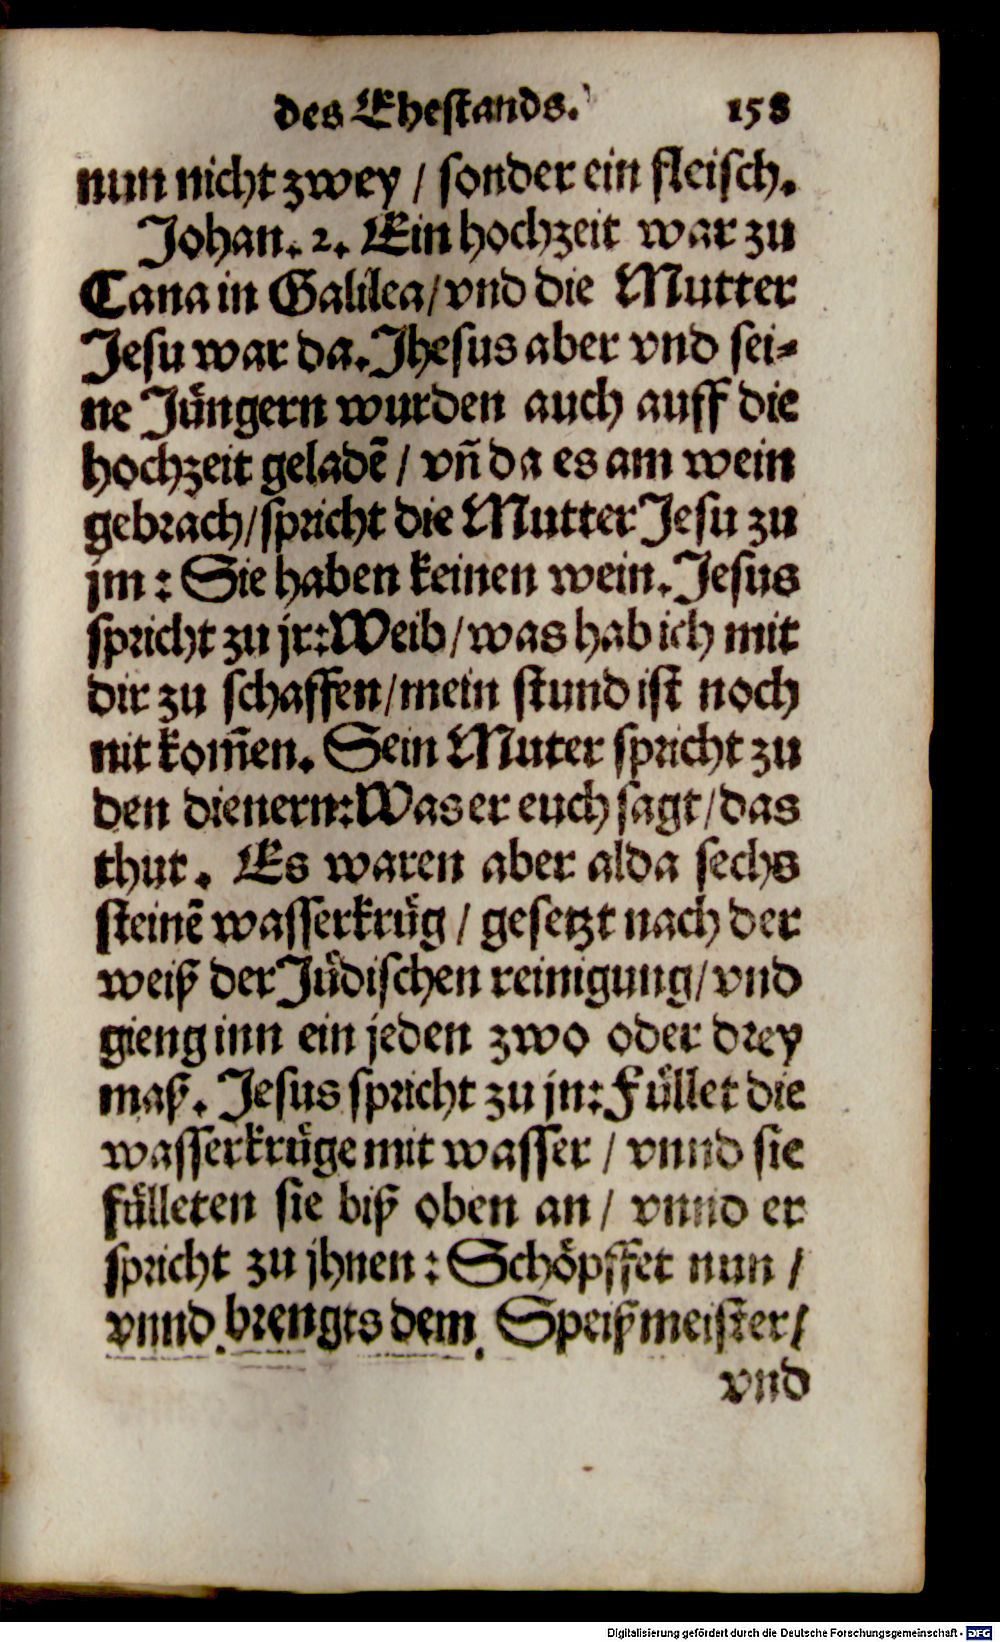 des Ehestands. 158
nun nicht zwey / sonder ein fleisch.
Johan. 2. Ein hochzeit war zu
Cana in Galilea / vnd die Mutter
Jesu war da. Jhesus aber vnd sei⸗
ne Jüngern wurden auch auff die
hochzeit geladē / vñ da es am wein
gebrach / spricht die Mutter Jesu zu
jm : Sie haben keinen wein. Jesus
spricht zu jr : Weib / was hab ich mit
dir zu schaffen / mein stund ist noch
nit kom̃en. Sein Muter spricht zu
den dienern : Was er euch sagt / das
thut. Es waren aber alda sechs
steinē wasserkrüg / gesetzt nach der
weiß der Jüdischen reinigung / vnd
gieng inn ein jeden zwo oder drey
maß. Jesus spricht zu jn : Füllet die
wasserkrüge mit wasser / vnnd sie
fülleten sie biß oben an / vnnd er
spricht zu jhnen : Schöpffet nun /
vnnd brengts dem Speißmeister /
vnd
Digitalisierung gefördert durch die Deutsche Forschungsgemeinschaft - DFG